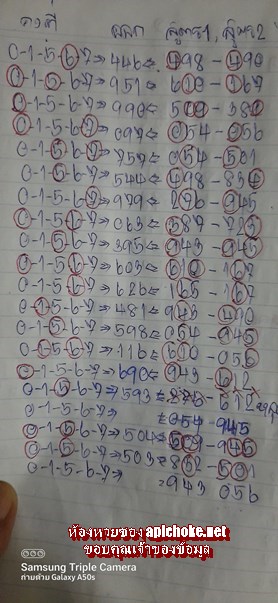 สูตร1, สูตร2
0-1-5-6-7 → 446 = 498 - 490
0-1-5-6-7 → 951 = 610 - 167
0-1-5-6-7 → 990 = 509 -
0-1-5-6-7 → 097 = 054 - 056
0-1-5-6-7 → 757 = 054 - 501
0-1-5-6-7 → 544 = 498 - 834
0-1-5-6-7 → 979 = 276 - 945
0-1-5-6-7 → 063 = 387 - 223
0-1-5-6-7 → 395 = 943 - 945
0-1-5-6-7 → 603 = 610 - 167
0-1-5-6-7 → 626 = 165 - 167
0-1-5-6-7 → 481 = 943 - 410
0-1-5-6-7 → 598 = 054 - 945
0-1-5-6-7 → 116 = 610 - 056
0-1-5-6-7 → 690 = 943 - 612
0-1-5-6-7 → 593 = - 612
0-1-5-6-7 → = 054 - 945
0-1-5-6-7 → 504 = 509 - 945
0-1-5-6-7 → 503 = 862 - 501
0-1-5-6-7 → = 943 056
ห้องหวยของ apichoke.net
ขอบคุณเจ้าของข้อมูล
Samsung Triple Camera
ถ่ายด้วย Galaxy A50s